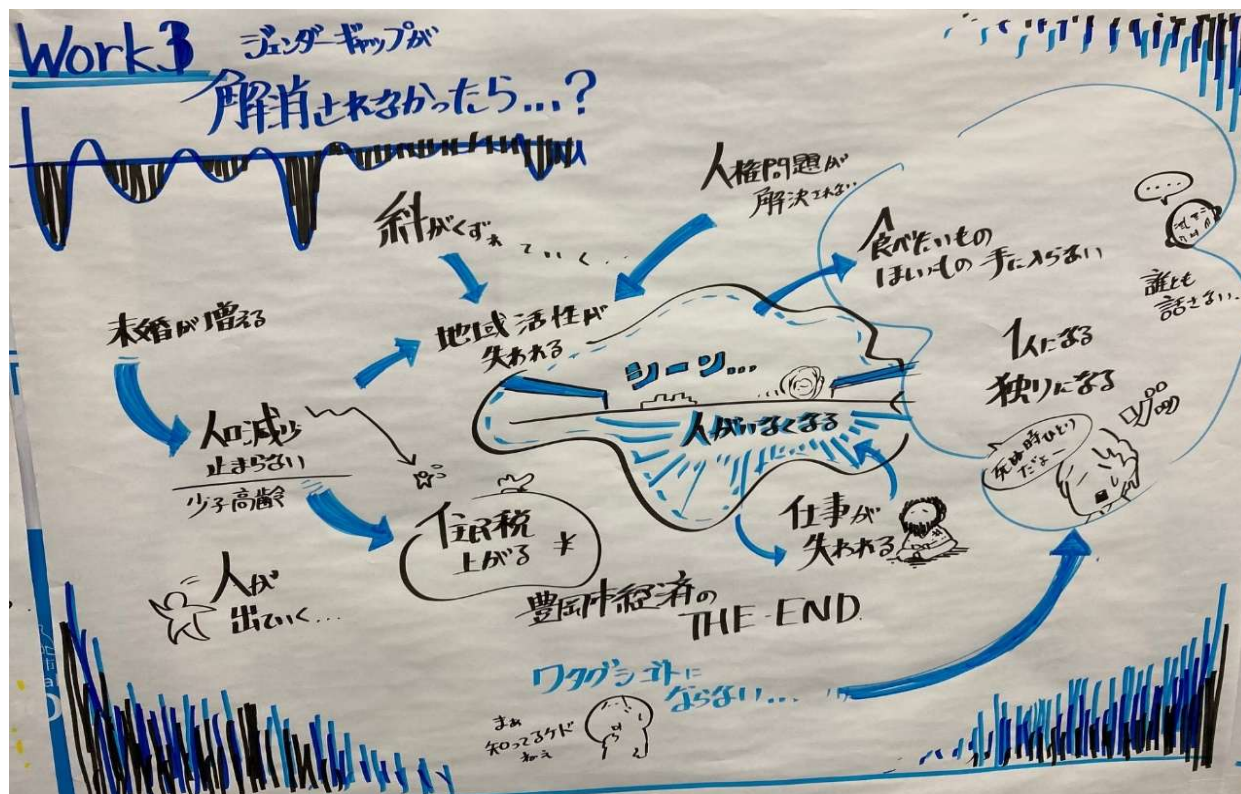 Work3
ジェンダーギャップが
解消されなかったら...?
人権問題が
解決されない
絆がくずれていく...
食べたいもの
ほしいもの 手に入らない
....
誰とも
話さない..
未婚が増える
地域活性が
失われる
シーン...
人がいなくなる
1人になる
独りになる
死ぬ時ひとり
だよー
人口減少
止まらない
少子高齢
住民税
上がる ¥
仕事が
失われる
人が
出ていく...
豊岡市経済の
THE-END
ワタクシゴトに
ならない...
まぁ
知ってるケド
ねぇ